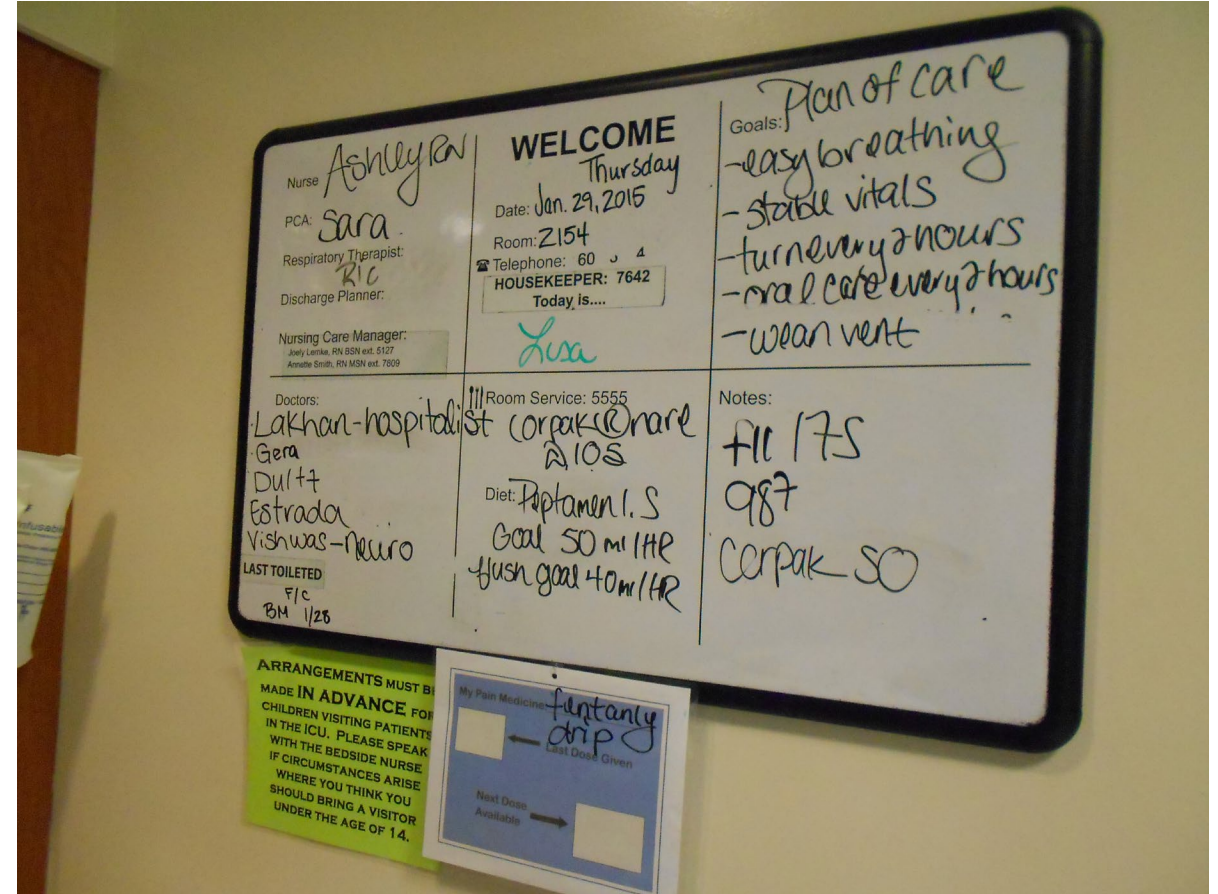 Nurse Ashley RN
PCA: Sara
Respiratory Therapist:
Ric
Discharge Planner:
Nursing Care Manager:
Joely Lemke, RN BSN ext. 5127
Annette Smith, RN MSN ext. 7609
WELCOME
Thursday
Date: Jan. 29, 2015
Room: 2154
Telephone: 60 4
HOUSEKEEPER: 7642
Today is....
Lisa
Plan of care
Goals:
-easy breathing
-stable vitals
-turn every 2 hours
-oral care every 2 hours
-wean vent
Doctors:
Lakhan-hospitalist
Gera
Estrada
Vishwas-neuro
LAST TOILETED
F/C
BM 1/28
Room Service: 5555
corpak (R) nare
@ 105
Diet: Peptamen 1.5
Goal 50 ml/HR
flush goal 40 ml/HR
Notes:
175
987
Corpak 50
ARRANGEMENTS MUST B
MADE IN ADVANCE FOR
CHILDREN VISITING PATIENTS
IN THE ICU. PLEASE SPEAK
WITH THE BEDSIDE NURSE
IF CIRCUMSTANCES ARISE
WHERE YOU THINK YOU
SHOULD BRING A VISITOR
UNDER THE AGE OF 14.
My Pain Medicine: funtanly
drip
Last Dose Given
Next Dose
Available